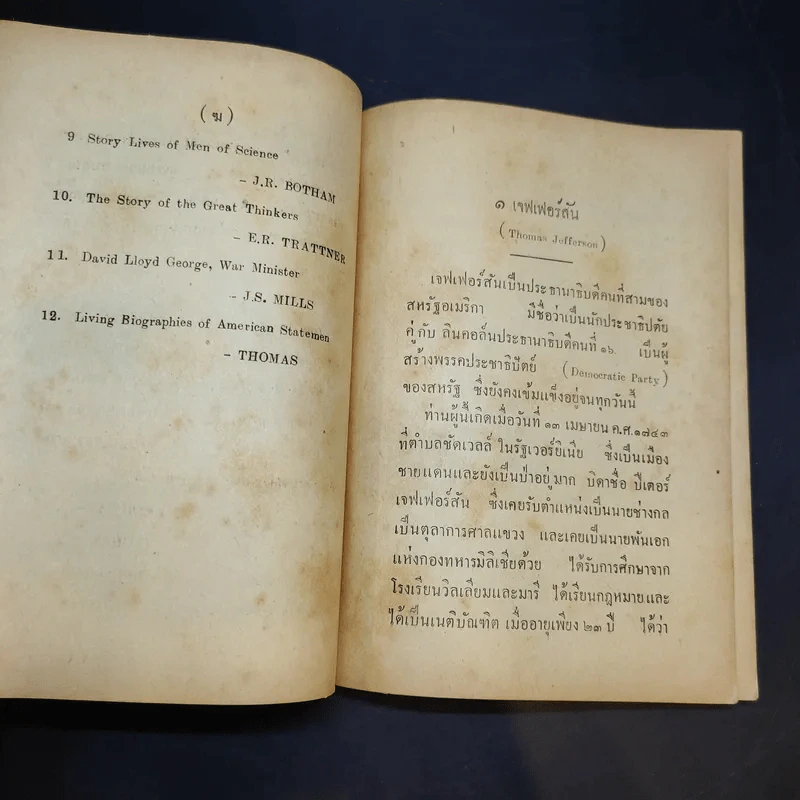 (ฆ)
9 Story Lives of Men of Science
– J.R. BOTHAM
10. The Story of the Great Thinkers
– E.R. TRATTNER
11. David Lloyd George, War Minister
– J.S. MILLS
12. Living Biographies of American Statemen
– THOMAS
๑ เจฟเฟอร์สัน
(Thomas Jefferson)
เจฟเฟอร์สันเป็นประธานาธิบดีคนที่สามของ
สหรัฐอเมริกา มีชื่อว่าเป็นนักประชาธิปตัย
คู่กับ ลินคอล์นประธานาธิบดีคนที่ ๑๖ เป็นผู้
สร้างพรรคประชาธิปัตย์ (Democratic Party)
ของสหรัฐ ซึ่งยังคงเข้มแข็งอยู่จนทุกวันนี้
ท่านผู้นี้เกิดเมื่อวันที่ ๑๓ เมษายน ค.ศ.๑๗๔๓
ที่ตำบลชัดเวลล์ ในรัฐเวอร์ยิเนีย ซึ่งเป็นเมือง
ชายแดนและยังเป็นป่าอยู่มาก บิดาชื่อ ปีเตอร์
เจฟเฟอร์สัน ซึ่งเคยรับตำแหน่งเป็นนายช่างกล
เป็นตุลาการศาลแขวง และเคยเป็นนายพันเอก
แห่งกองทหารมิลิเชียด้วย ได้รับการศึกษาจาก
โรงเรียนวิลเลียมและมารี ได้เรียนกฎหมายและ
ได้เป็นเนติบัณฑิต เมื่ออายุเพียง ๒๓ ปี ได้ว่า